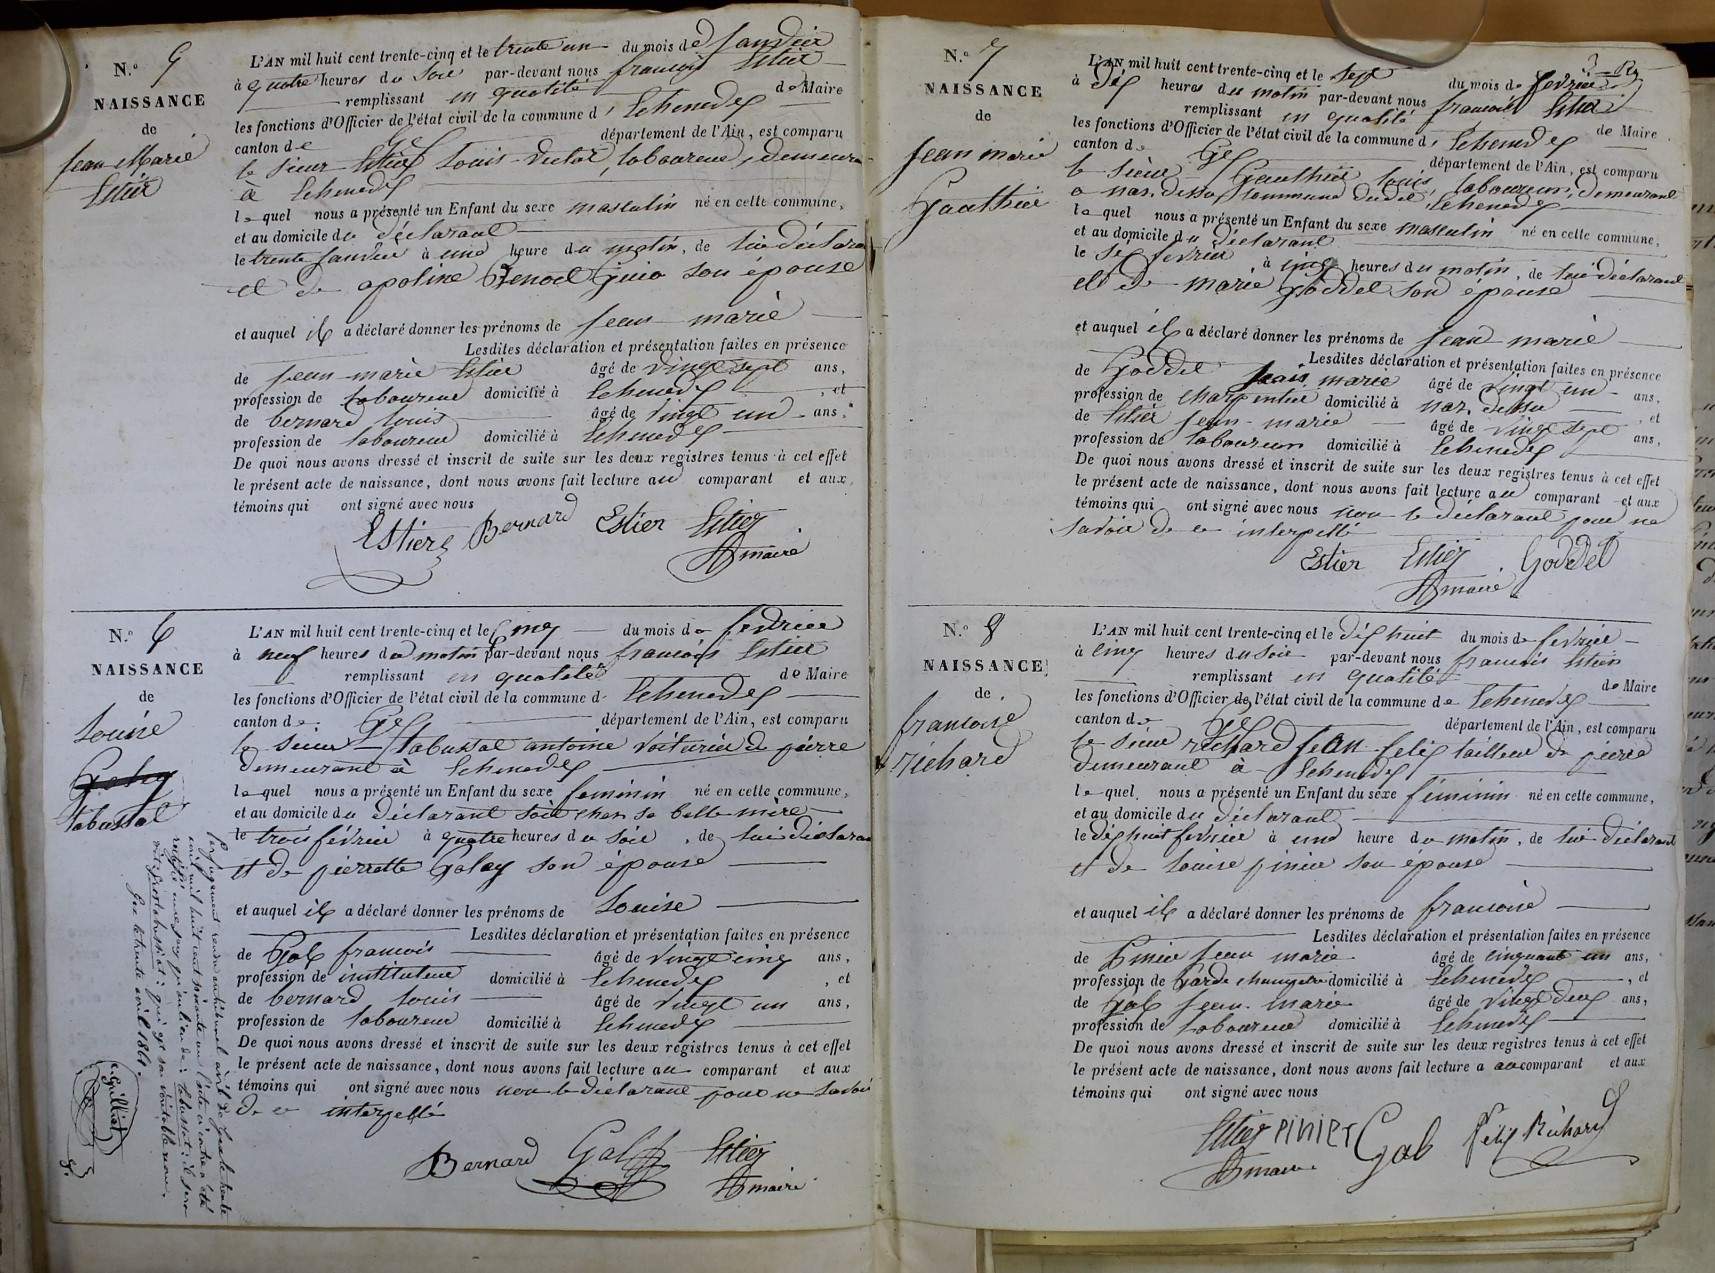 N.º 5
NAISSANCE
de
Jean Marie
Estier
L'AN mil huit cent trente-cinq et le trente un du mois de janvier
à quatre heures du soir par-devant nous francois Estier
remplissant en qualité de Maire
les fonctions d'Officier de l'état civil de la commune d' Echenevex
canton de Gex département de l'Ain, est comparu
le sieur Estier Louis Victor, laboureur, demeurant
à Echenevex
lequel nous a présenté un Enfant du sexe masculin né en cette commune,
et au domicile du déclarant
le trente janvier à une heure du matin, de lui déclarant
et de apoline Benoit son épouse
et auquel il a déclaré donner les prénoms de jean marie
Lesdites déclaration et présentation faites en présence
de jean marie Estier âgé de vingt sept ans,
profession de laboureur domicilié à Echenevex, et
de bernard louis âgé de vingt un ans,
profession de laboureur domicilié à Echenevex
De quoi nous avons dressé et inscrit de suite sur les deux registres tenus à cet effet
le présent acte de naissance, dont nous avons fait lecture au comparant et aux
témoins qui ont signé avec nous
Estier Bernard Estier Estier
maire
N.º 6
NAISSANCE
de
Louise
tabussat
L'AN mil huit cent trente-cinq et le cinq du mois de fevrier
à neuf heures du matin par-devant nous francois Estier
remplissant en qualité de Maire
les fonctions d'Officier de l'état civil de la commune d' Echenevex
canton de Gex département de l'Ain, est comparu
le sieur tabussat antoine voiturier de pierre
demeurant à Echenevex
lequel nous a présenté un Enfant du sexe feminin né en cette commune,
et au domicile du déclarant soit chez sa belle mère
le trois février à quatre heures du soir, de lui déclarant
et de pierrette Golay son épouse
et auquel il a déclaré donner les prénoms de Louise
Lesdites déclaration et présentation faites en présence
de Gal francois âgé de vingt cinq ans,
profession de instituteur domicilié à Echenevex, et
de bernard louis âgé de vingt un ans,
profession de laboureur domicilié à Echenevex
De quoi nous avons dressé et inscrit de suite sur les deux registres tenus à cet effet
le présent acte de naissance, dont nous avons fait lecture au comparant et aux
témoins qui ont signé avec nous non le déclarant pour ne savoir
de ce interpellé
Bernard Gal Estier
maire
Par jugement rendu au tribunal civil de
Gex le trente avril 1861.
N.º 7
NAISSANCE
de
Jean marie
Gauthier
L'AN mil huit cent trente-cinq et le sept du mois de fevrier
à dix heures du matin par-devant nous francois Estier
remplissant en qualité de Maire
les fonctions d'Officier de l'état civil de la commune d' Echenevex
canton de Gex département de l'Ain, est comparu
le sieur Gauthier louis, laboureur, demeurant
a naz dessus, commune dudit Echenevex
lequel nous a présenté un Enfant du sexe masculin né en cette commune,
et au domicile du déclarant
le sept fevrier à cinq heures du matin, de lui déclarant
et de marie Goddet son épouse
et auquel il a déclaré donner les prénoms de jean marie
Lesdites déclaration et présentation faites en présence
de Goddet marie âgé de vingt un ans,
profession de charpentier domicilié à naz dessu, et
de Estier jean-marie âgé de vingt sept ans,
profession de laboureur domicilié à Echenevex
De quoi nous avons dressé et inscrit de suite sur les deux registres tenus à cet effet
le présent acte de naissance, dont nous avons fait lecture au comparant et aux
témoins qui ont signé avec nous non le déclarant pour ne
savoir de ce interpellé
Estier Estier Goddet
maire
N.º 8
NAISSANCE
de
francoise
richard
L'AN mil huit cent trente-cinq et le dix huit du mois de fevrier
à cinq heures du soir par-devant nous francois Estier
remplissant en qualité de Maire
les fonctions d'Officier de l'état civil de la commune de Echenevex
canton de Gex département de l'Ain, est comparu
le sieur richard jean felix tailleur de pierre
demeurant à Echenevex
lequel nous a présenté un Enfant du sexe féminin né en cette commune,
et au domicile du déclarant
le dix huit fevrier à une heure du matin, de lui déclarant
et de louise pinier son épouse
et auquel il a déclaré donner les prénoms de francoise
Lesdites déclaration et présentation faites en présence
de Pinier jean marie âgé de cinquante un ans,
profession de Garde champetre domicilié à Echenevex, et
de Gal jean-marie âgé de vingt deux ans,
profession de laboureur domicilié à Echenevex
De quoi nous avons dressé et inscrit de suite sur les deux registres tenus à cet effet
le présent acte de naissance, dont nous avons fait lecture a au comparant et aux
témoins qui ont signé avec nous
Estier PINIER Gal Felix Richard
maire